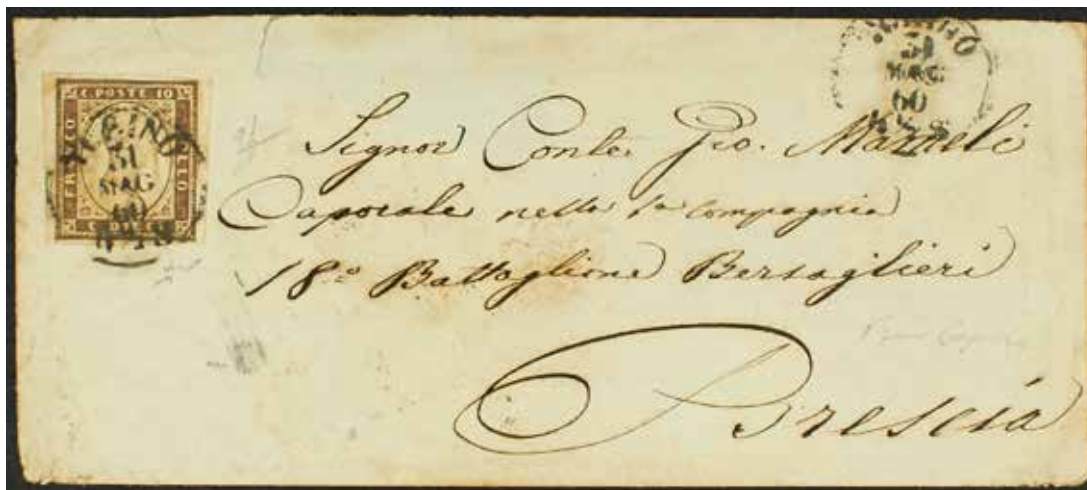 C. POSTE 10
FRANCO
BOLLO
TORINO
31
MAG
60
TORINO
31
MAG
60
Signor Conte Gio.
Caporale nella 1a Compagnia
18o Battaglione Bersaglieri
Brescia